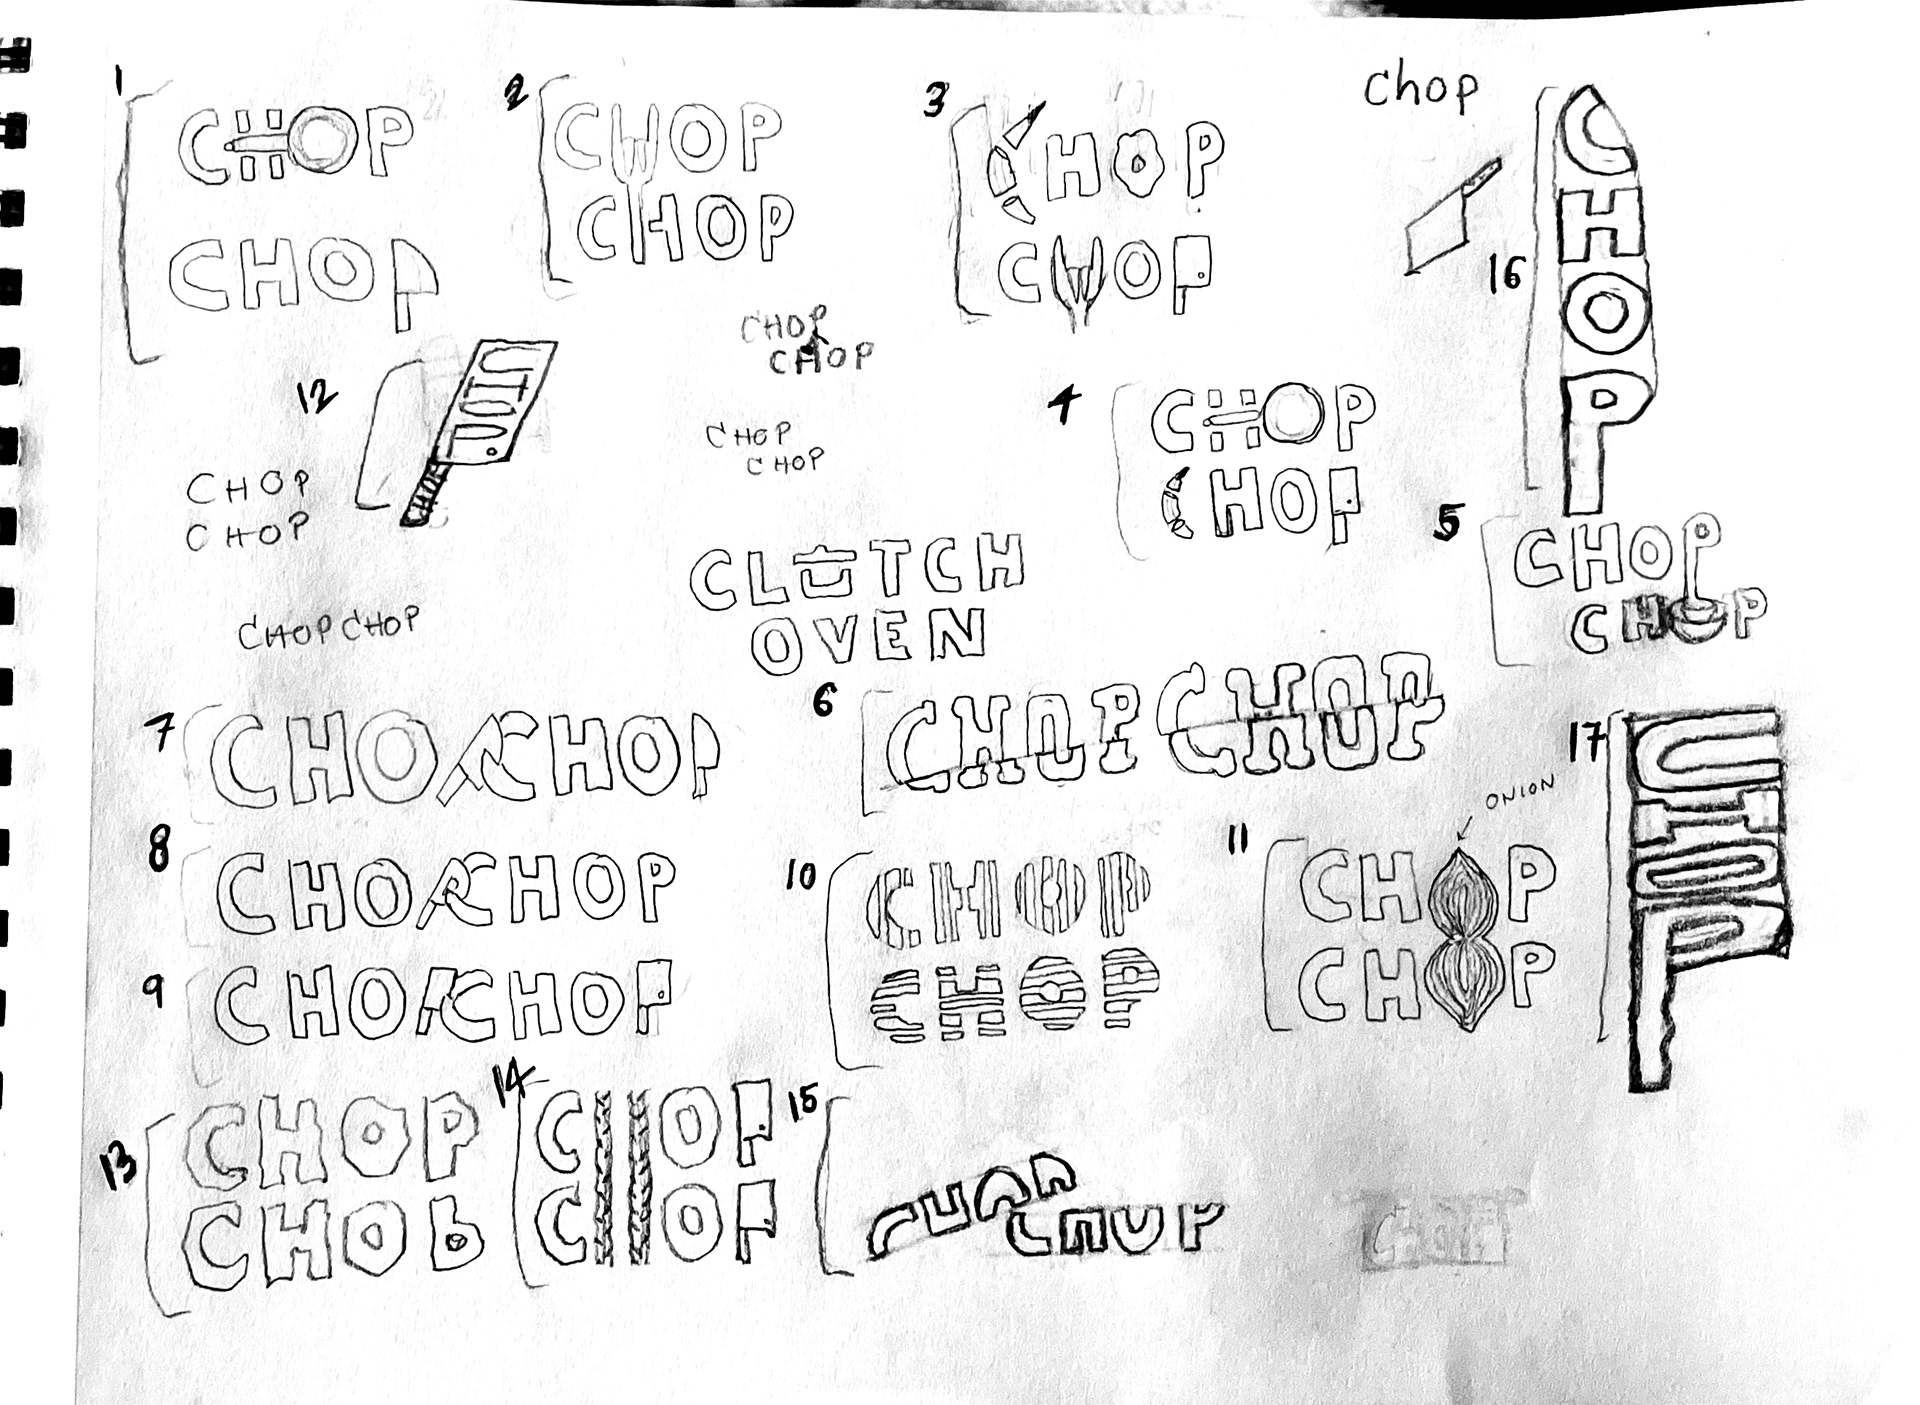 1
CHOP
CHOP
2
CHOP
CHOP
3
CHOP
CHOP
chop
16
CHOP
12
CHOP
CHOP
CHOP
CHOP
CHOP
4
CHOP
CHOP
CHOP
CHOP
5
CHOP
CHOP
CLUTCH
OVEN
CHOPCHOP
6
CHOP CHOP
7
CHOPCHOP
17
CHOP
8
CHOPCHOP
9
CHOPCHOP
10
CHOP
CHOP
11
ONION
CHOP
CHOP
13
CHOP
CHOP
14
CHOP
CHOP
15
CHOP
CHOP